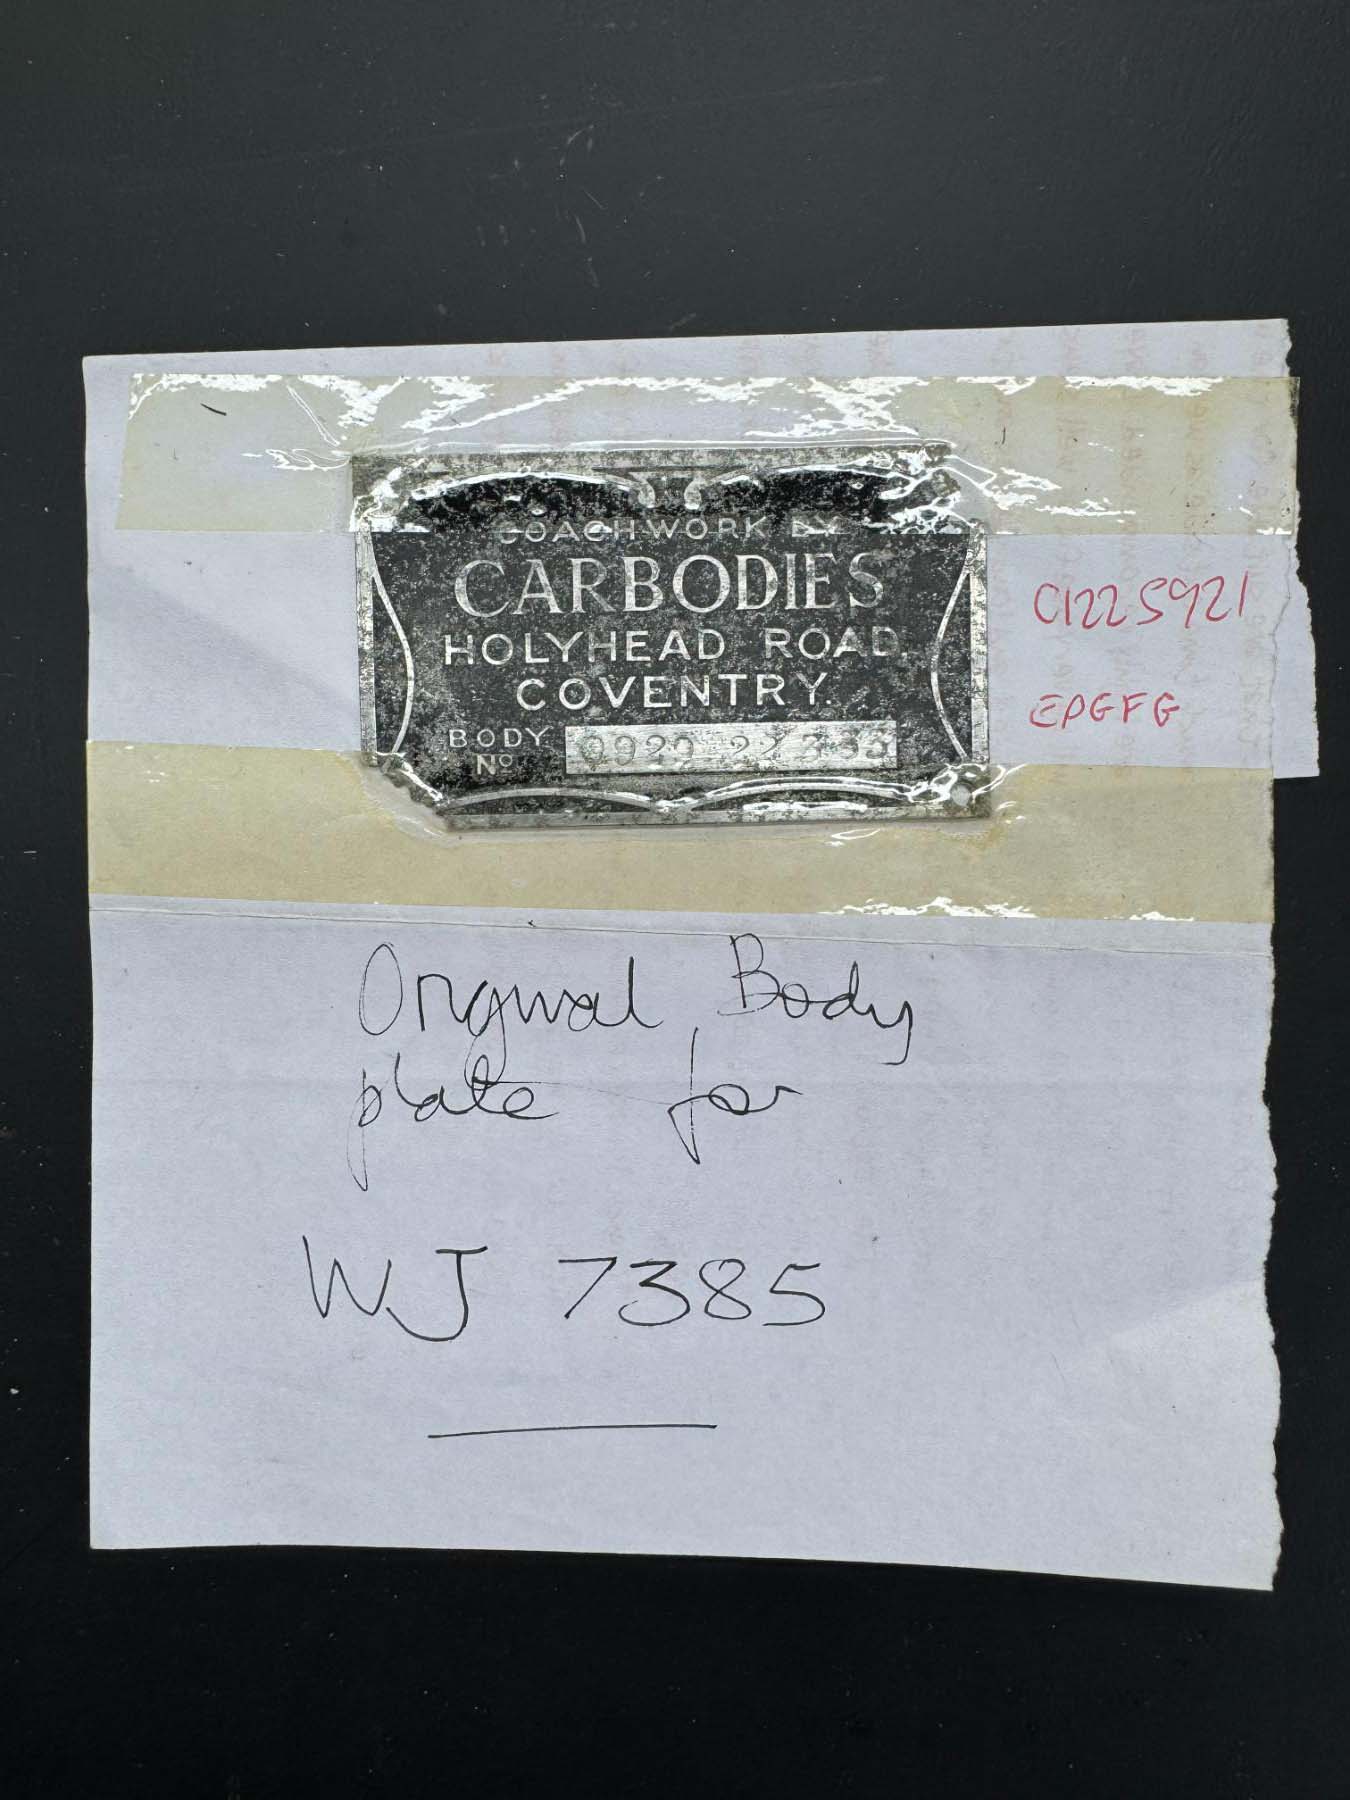 COACHWORK BY
CARBODIES
HOLYHEAD ROAD,
COVENTRY.
BODY
Nº
C1225921
EPGFG
Original Body
plate for
WJ 7385